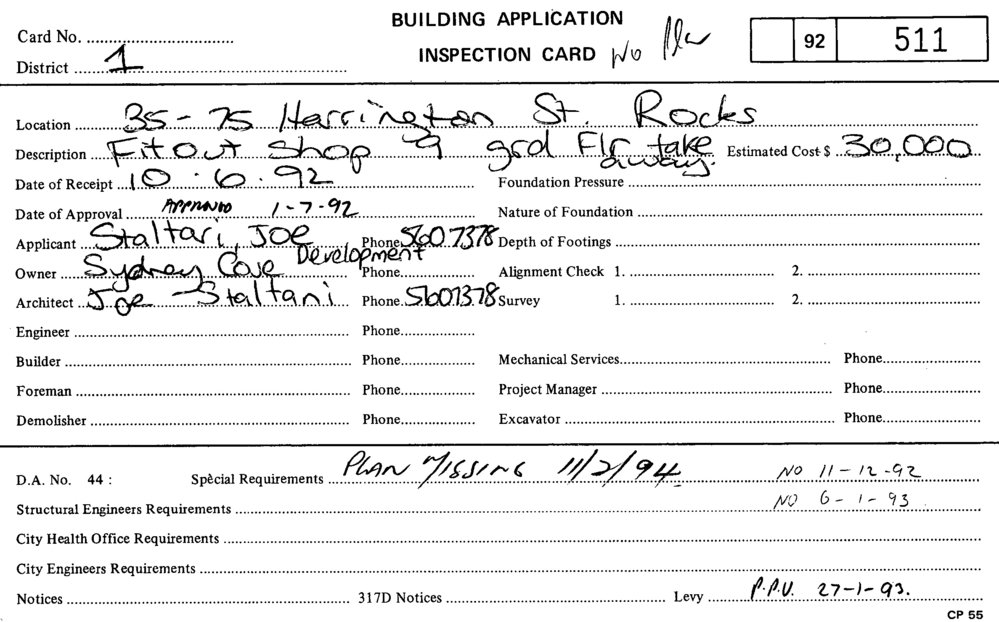 BUILDING APPLICATION
INSPECTION CARD No Plan
Card No. ..........
District .......... 1
92 511
Location .......... 35-75 Harrington St. Rocks
Description .......... Fitout Shop 9 grd Flr take away. Estimated Cost $ .......... 30,000
Date of Receipt .......... 10.6.92 Foundation Pressure ..........
Date of Approval .......... APPROVED 1-7-92 Nature of Foundation ..........
Applicant .......... Staltari, Joe Phone 5607378 Depth of Footings ..........
Owner .......... Sydney Cove Development Phone .......... Alignment Check 1. .......... 2. ..........
Architect .......... Joe Staltari Phone. 5607378 Survey 1. .......... 2. ..........
Engineer .......... Phone ..........
Builder .......... Phone .......... Mechanical Services .......... Phone ..........
Foreman .......... Phone .......... Project Manager .......... Phone ..........
Demolisher .......... Phone .......... Excavator .......... Phone ..........
D.A. No. 44 : Spècial Requirements .......... PLAN MISSING 11/2/94 NO 11-12-92
Structural Engineers Requirements .......... NO 6-1-93
City Health Office Requirements ..........
City Engineers Requirements ..........
Notices .......... 317D Notices .......... Levy .......... P.P.U. 27-1-93.
CP 55